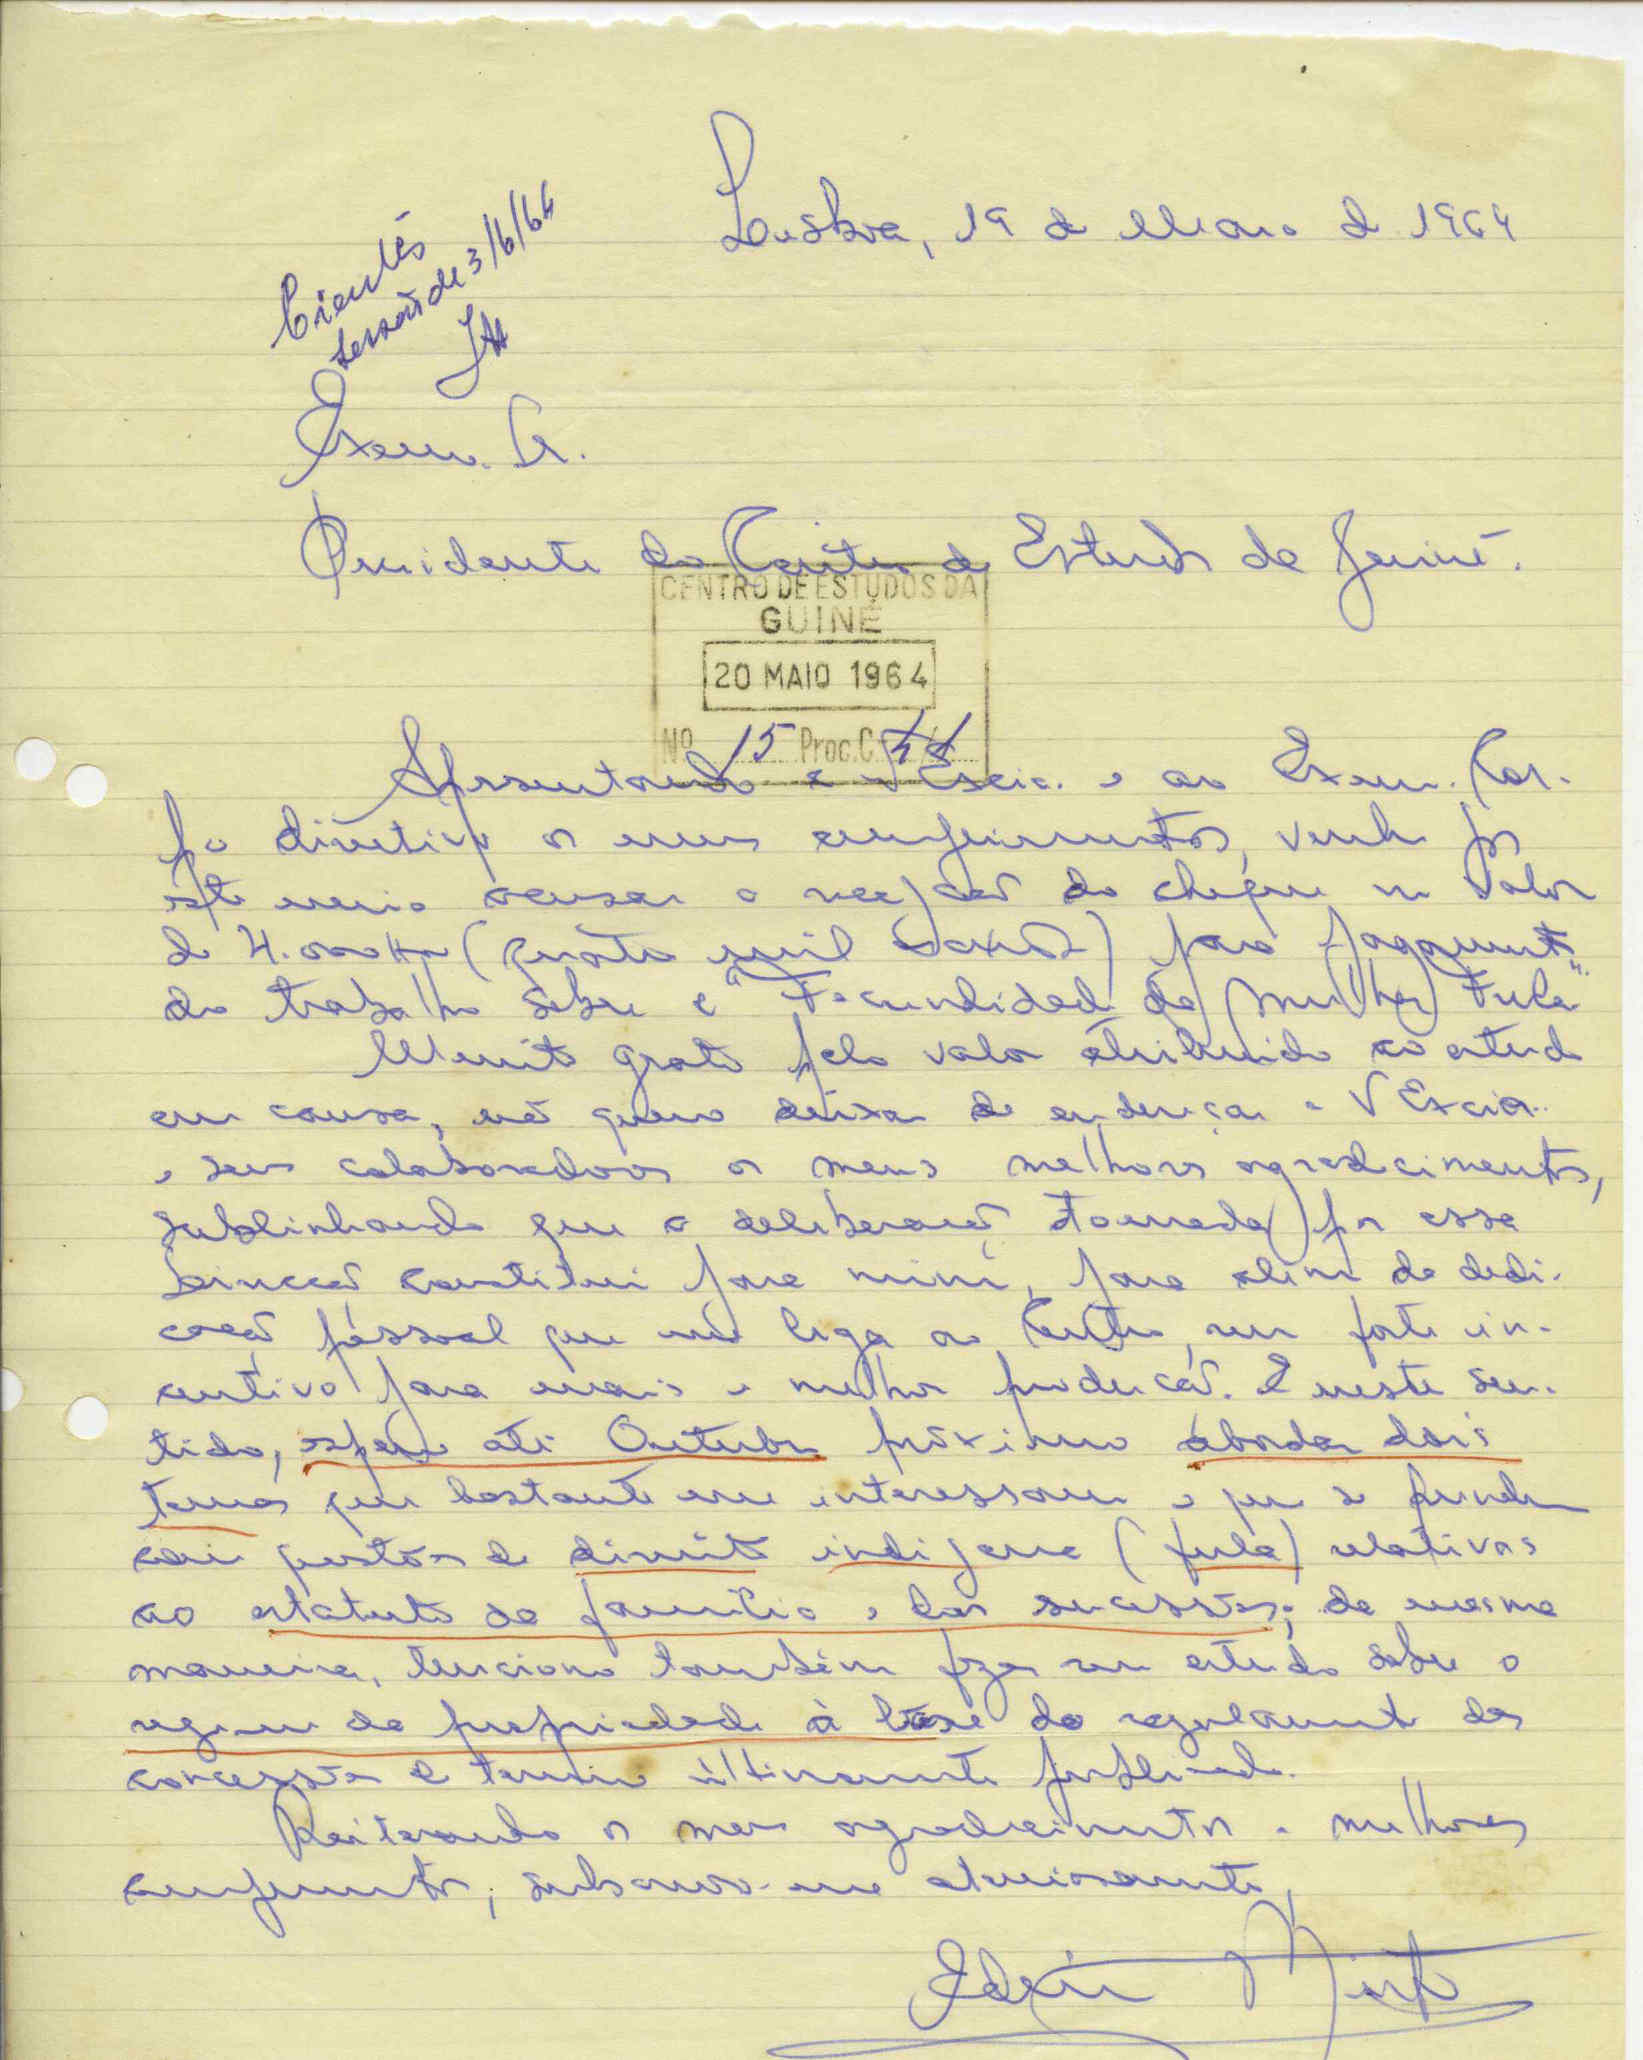 Lisboa, 19 de Maio de 1964
Cientes
sessão de 3/6/64
Exmo. Sr.
Presidente do Centro de Estudos da Guiné.
CENTRO DE ESTUDOS DA
GUINÉ
20 MAIO 1964
Nº 15 Proc. C
Apresentando a V Excia. e ao Exmo. Cor-
po diretivo os meus cumprimentos, venho por
este meio acusar a recepção do cheque no valor
de (quatro mil escudos) para pagamento
do trabalho sobre a "Fecundidade da Mulher Fula".
Muito grato pelo valor atribuido ao estudo
em causa, não quero deixar de endereçar a V Excia.
e seus colaboradores os meus melhores agradecimentos,
sublinhando que a deliberação tomada por essa
Direcção constitui para mim, para além da dedi-
cação pessoal que me liga ao Centro, um forte in-
centivo para mais e melhor produção. E neste sen-
tido, espero até Outubro próximo abordar dois
temas que bastante me interessam e que se prendem
com questões de direito indígena (fula) relativas
ao estatuto da família e das sucessões; da mesma
maneira, tenciono também fazer um estudo sobre o
regime da propriedade à base do regulamento das
concessões de terreno últimamente publicado.
Reiterando os meus agradecimentos e melhores
cumprimentos, subscrevo-me atenciosamente,